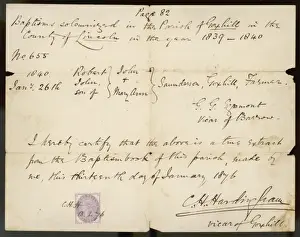 Page 82
Baptisms solemnized in the Parish of Goxhill in the
County of Lincoln in the year 1839 – 1840
No 655
1840 Robert John
Jany. 26th John Saunderson, Goxhill, Farmer
son of Mary Ann
Vicar of Barrow.
I hereby certify that the above is a true extract
from the Baptism book of this parish, made by
me, this thirteenth day of January 1876
C.H.H.
vicar of Goxhill.